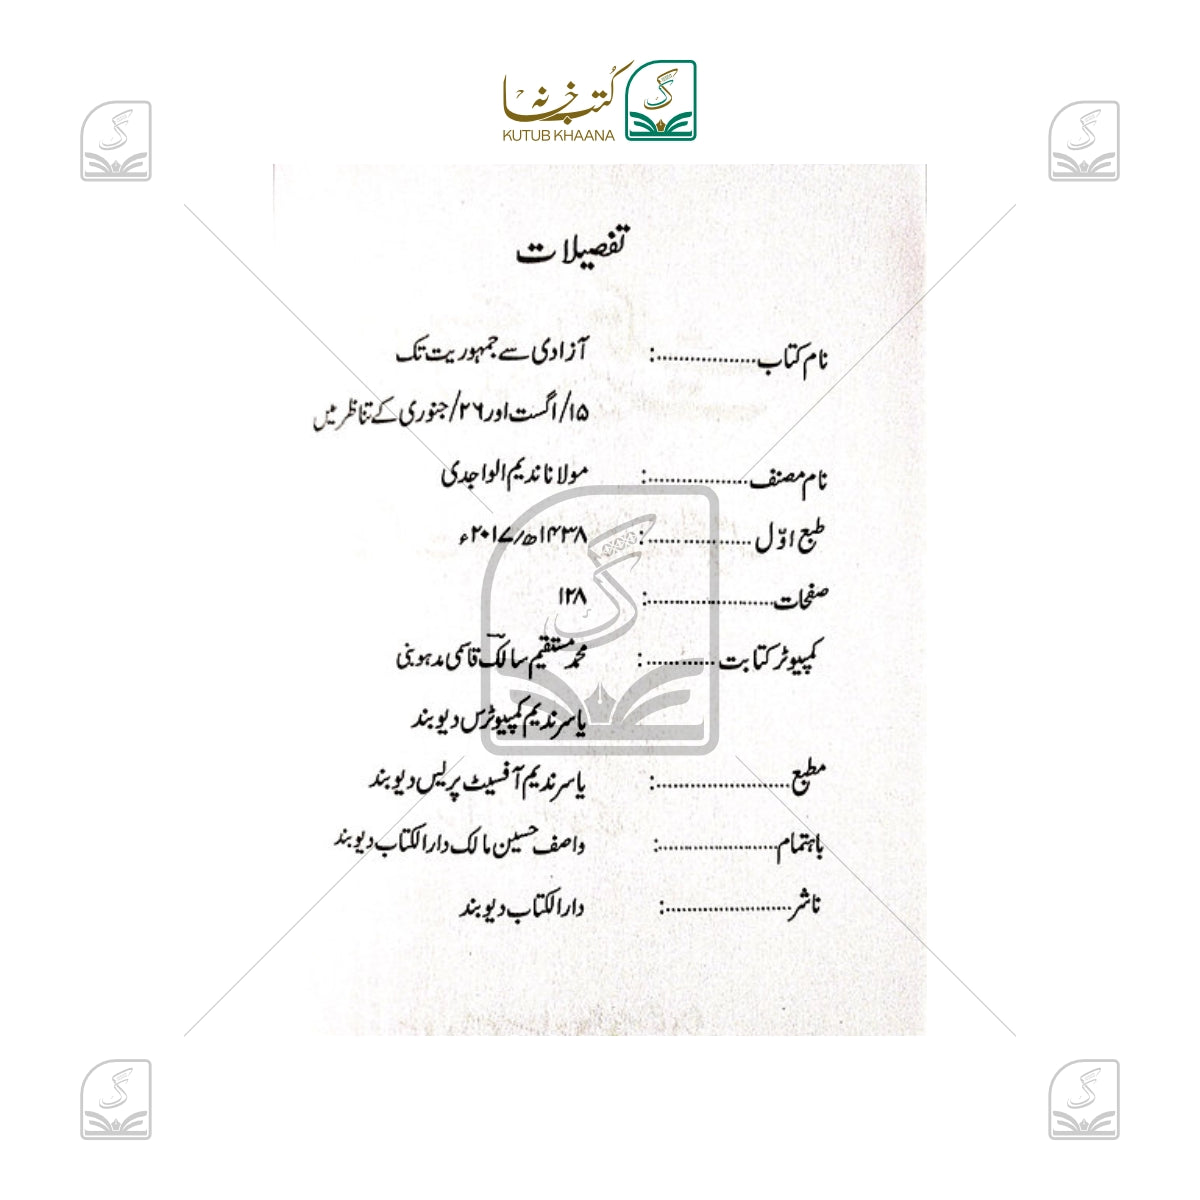 کتب خانہ
KUTUB KHAANA
تفصیلات
نام کتاب..................: آزادی سے جمہوریت تک
۱۵/اگست اور ۲۶/جنوری کے تناظر میں
نام مصنف..................: مولانا ندیم الواجدی
طبع اوّل..................: ۱۴۳۸ھ/۲۰۱۷ء
صفحات......................: ۱۲۸
کمپیوٹر کتابت............: محمد مستقیم سالکؔ قاسمی مدہوبنی
یاسر ندیم کمپیوٹرس دیوبند
مطبع........................: یاسر ندیم آفسیٹ پریس دیوبند
باہتمام.....................: واصف حسین مالک دارالکتاب دیوبند
ناشر.......................: دارالکتاب دیوبند